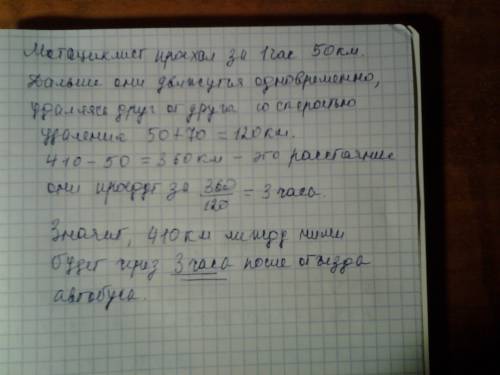 Мотоциклист проехал за 1 час 50 км.
Дальше они движутся одновременно,
удаляясь друг от друга со скоростью
удаления 50+70 = 120 км.
410 - 50 = 360 км - это расстояние
они пройдут за 360/120 = 3 часа.
Значит, 410 км между ними
будет через 3 часа после отъезда
автобуса.